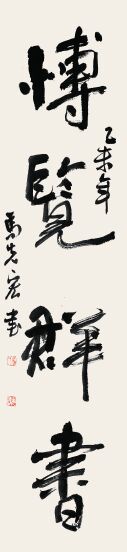 博覽群書
乙未年
马先宏書